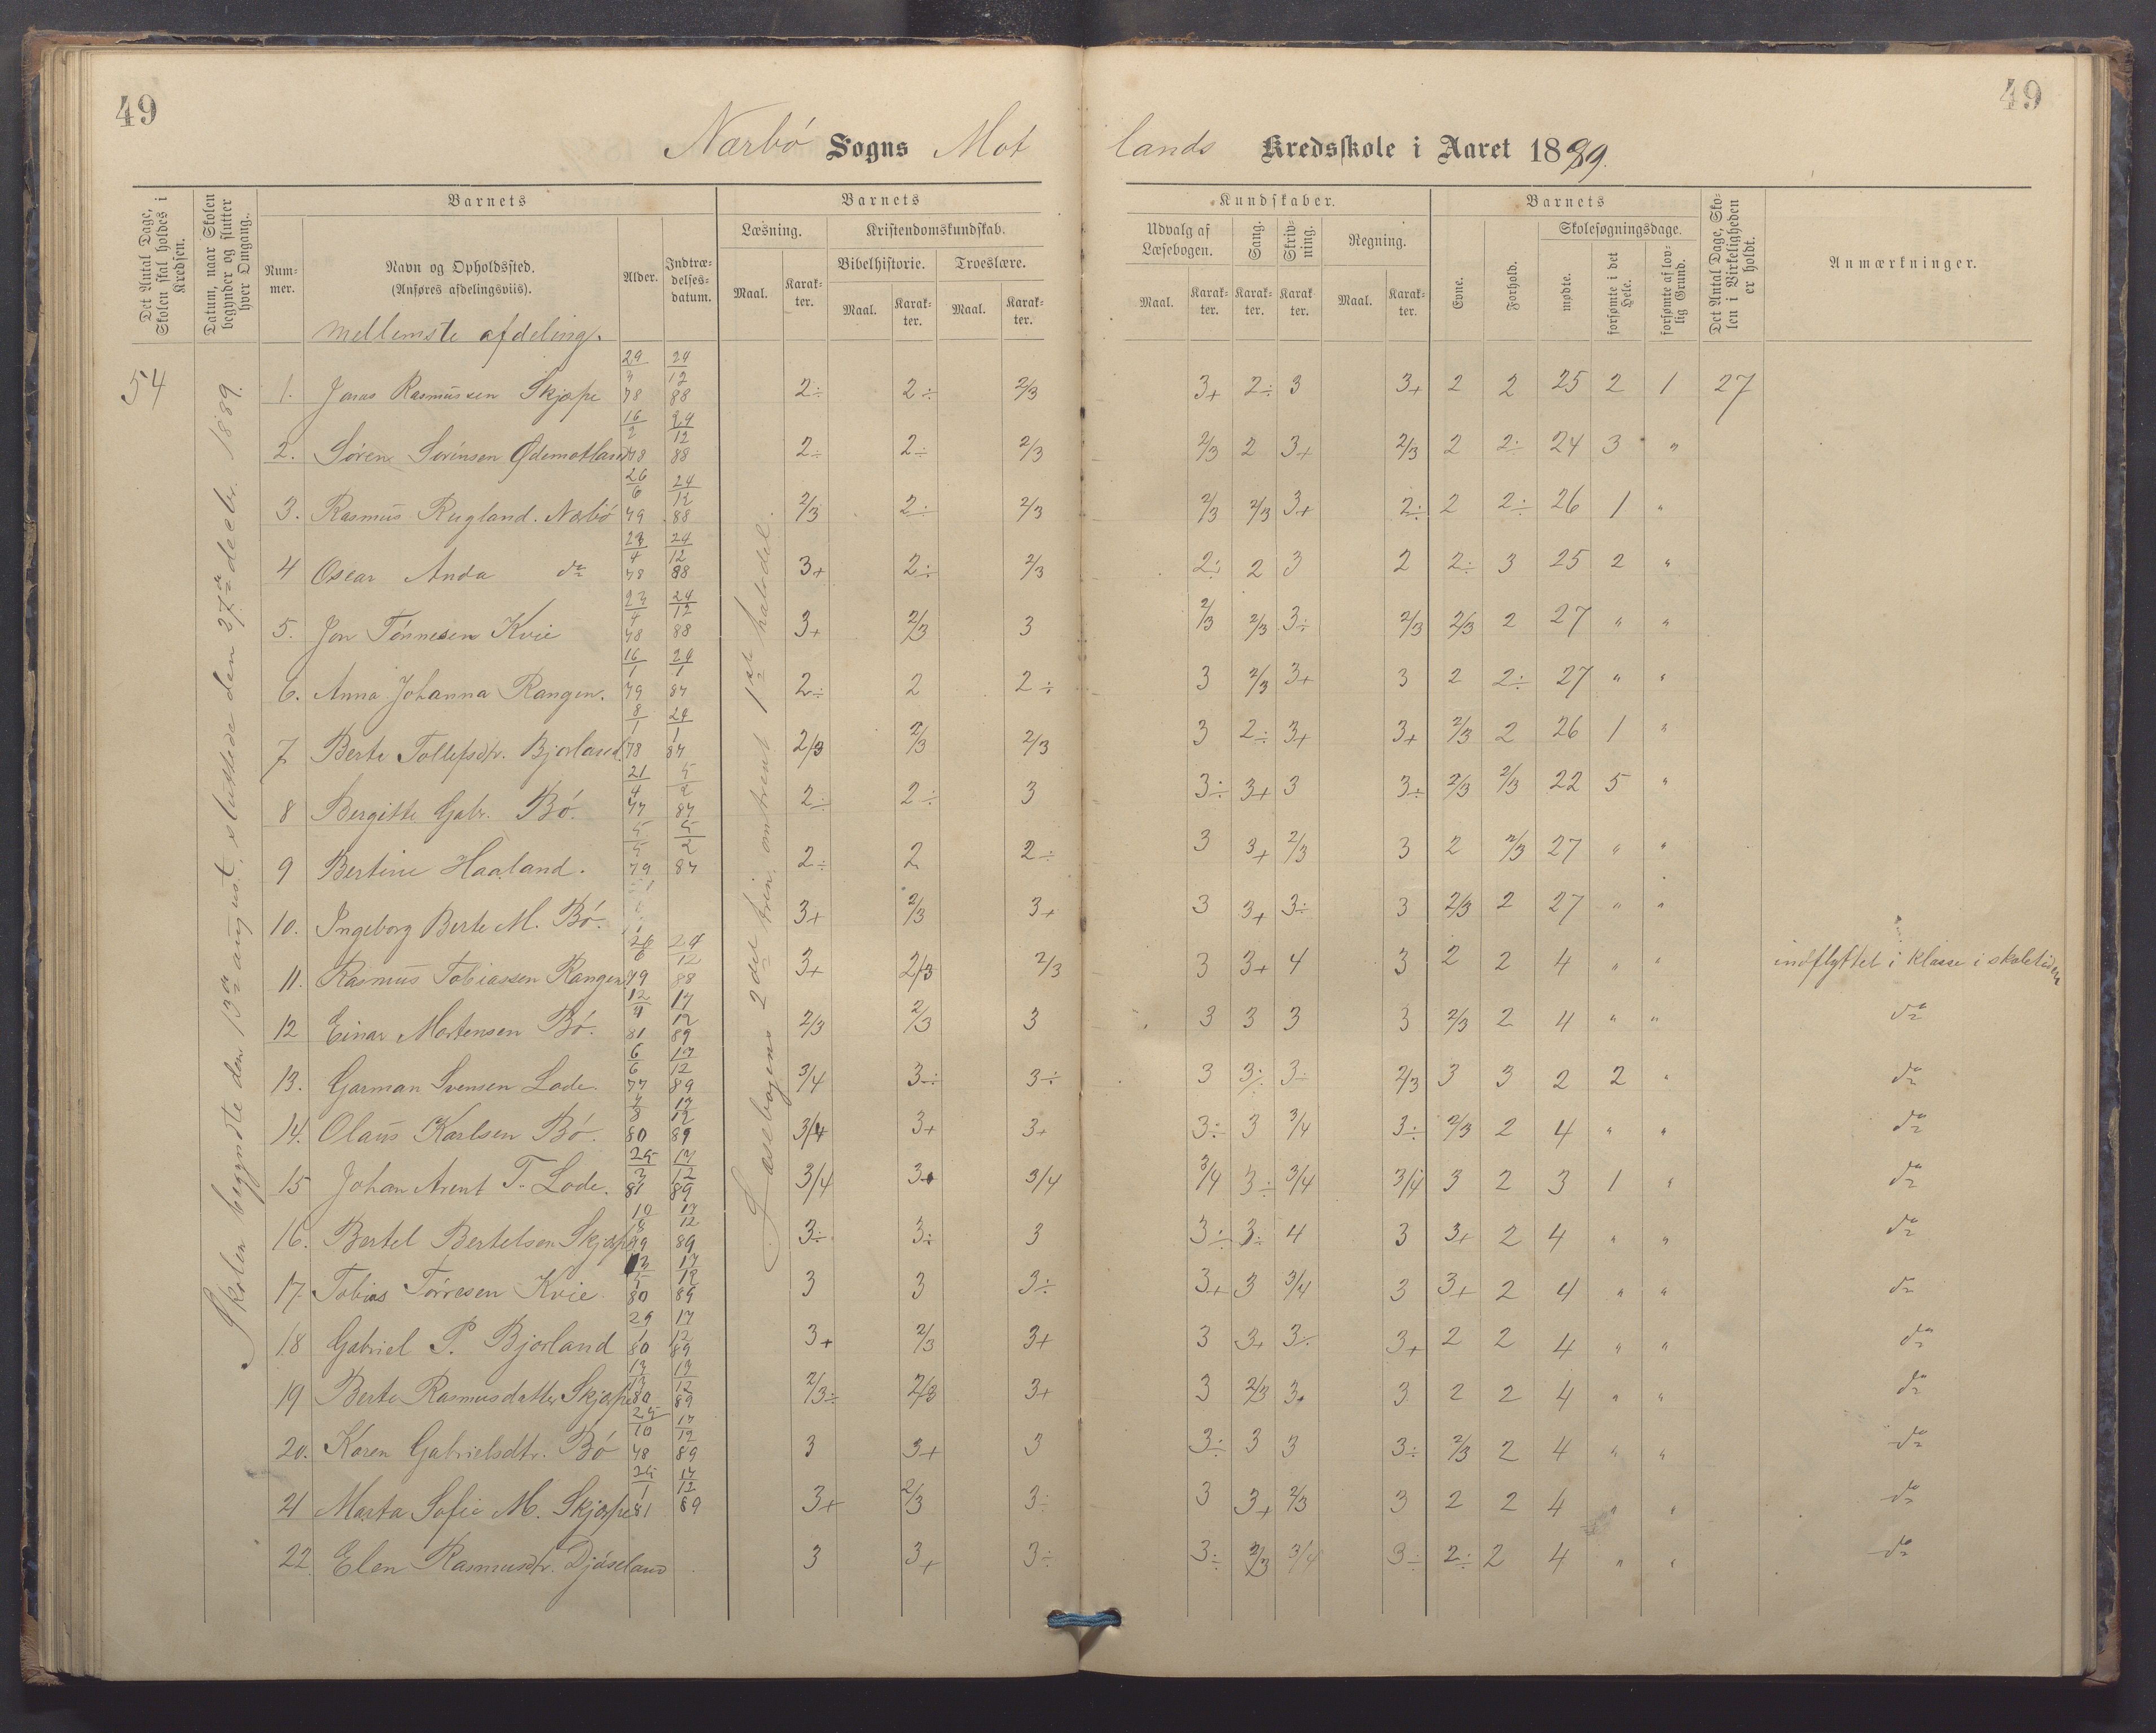 49
49
Nærbö Sogns Mot lands Kredsskole i Aaret 1889.
Det Antal Dage, Skolen skal holdes i Kredsen.
Datum, naar Skolen begynder og slutter hver Omgang.
Barnets
Num-mer.
Navn og Opholdssted.
(Anføres afdelingsviis).
Alder.
Indtræ-delses-datum.
Barnets
Læsning.
Maal.
Karak-ter.
Kristendomskundskab.
Bibelhistorie.
Maal.
Karak-ter.
Troeslære.
Maal.
Karak-ter.
Kundskaber.
Udvalg af Læsebogen.
Maal.
Karak-ter.
Sang.
Karak-ter.
Skriv-ning.
Karak ter.
Regning.
Maal.
Karak-ter.
Barnets
Evne.
Forhold.
Skolesøgningsdage.
mødte.
forsømte i det Hele.
forsømte af lov-lig Grund.
Det Antal Dage, Sko-len i Virkeligheden er holdt.
Anmærkninger.
mellemste afdeling.
54
Skolen begyndte den 13de august, sluttede den 27de decbr. 1889.
Læsebogens 2det trin, omtrent 1ste halvdel.
1. Jonas Rasmussen Skjæpe 29/3 78 24/12 88 2÷ 2÷ 2/3 3+ 2÷ 3 3+ 2 2 25 2 1 27
2. Sören Sörinsen Ødemotland 16/2 78 24/12 88 2÷ 2÷ 2/3 2/3 2 3+ 2/3 2 2÷ 24 3 "
3. Rasmus Rugland. Nærbö 26/6 79 24/12 88 2/3 2÷ 2/3 2/3 2/3 3+ 2÷ 2 2÷ 26 1 "
4 Oscar Anda do 23/4 78 24/12 88 3+ 2÷ 2/3 2÷ 2 3 2 2÷ 3 25 2 "
5. Jon Tönnesen Kvie 23/4 78 24/12 88 3+ 2/3 3 2/3 2/3 3÷ 2/3 2/3 2 27 " "
6. Anna Johanna Rangen. 16/1 79 24/1 87 2÷ 2 2÷ 3 2/3 3+ 3 2 2÷ 27 " "
7 Berte Tollefsdtr. Bjorland 8/1 78 24/1 87 2/3 2/3 2/3 3 2÷ 3+ 3+ 2/3 2 26 1 "
8 Bergitte Gabr. Bö. 21/4 77 5/2 87 2÷ 2÷ 3 3÷ 3+ 3 3÷ 2/3 2/3 22 5 "
9 Bertine Haaland. 5/5 79 5/2 87 2÷ 2 2÷ 3 3+ 2/3 3 2 2/3 27 " "
10. Ingeborg Berte M. Bö. 3+ 2/3 3+ 3 3+ 3÷ 3 2/3 2 27 " "
11. Rasmus Tobiassen Rangen 26/6 79 24/12 88 3+ 2/3 2/3 3 3+ 4 3 2 2 4 " " indflyttet i klasse i skoletiden
12 Einar Mortensen Bö. 12/4 81 17/12 89 2/3 2/3 3 3 3 3 3 2/3 2 4 " " do
13. Garman Svensen Lode. 6/6 77 17/12 89 3/4 3÷ 3÷ 3 3÷ 3÷ 2/3 3 3 2 2 " do
14. Olaus Karlsen Bö. 80 17/12 89 3/4 3+ 3+ 3÷ 3 3/4 3÷ 2/3 2 4 " " do
15 Johan Arent T. Lode. 81 17/12 89 3/4 3+ 3/4 3/4 3÷ 3/4 3/4 3 2 3 1 " do
16. Bertel Bertelsen Skjæpe 79 17/12 89 3÷ 3÷ 3 3÷ 3÷ 4 3 3+ 2 4 " " do
17. Tobias Törresen Kvie 80 17/12 89 3 3 3÷ 3+ 3 3/4 3 3+ 2 4 " " do
18 Gabriel P. Bjorland 29/1 80 17/12 89 3+ 2/3 3+ 3 3+ 3÷ 3+ 2 2 4 " " do
19 Berte Rasmusdatter Skjæpe 80 17/12 89 2/3÷ 2/3 3+ 3 2/3 3+ 3 2 2 4 " " do
20. Karen Gabrielsdtr. Bö 25/10 78 17/12 89 3 3+ 3 3÷ 3 3 3÷ 2/3 2 4 " " do
21 Marta Sofie M. Skjæpe 25/1 81 17/12 89 3+ 2/3 3÷ 3 3+ 2/3 3 2 2 4 " " do
22. Elen Rasmusdtr. Djöseland 3 3+ 3÷ 3÷ 2/3 3/4 3÷ 2÷ 2 4 " " do